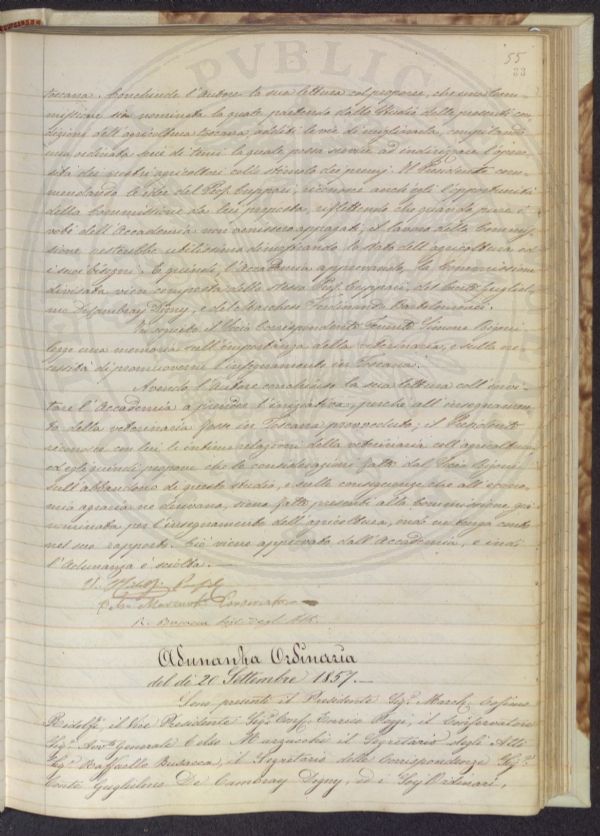 55
33
toscana. Conchiude l'Autore la sua lettura col proporre, che una Com
missione sia nominata la quale partendo dallo studio delle presenti con
dizioni dell'agricoltura toscana, additi le vie di migliorarla, compilando
una ordinata serie di temi la quale possa servire ad indirizzare l'opero
sità dei nostri agricoltori collo stimolo dei premj. Il Presidente com
mendando le idee del Prof. Cuppari, riconosce anch'egli l'opportunità
della Commissione da lui proposta, riflettendo che quando pure i
voti dell'Accademia non venissero appagati, il lavoro della Commis
sione resterebbe utilissimo dimostrando lo stato dell'agricoltura ed
i suoi bisogni. E quindi, l'Accademia approvando, la Commissione
divisata vien composta dello stesso Prof. Cuppari, del Conte Gugliel
mo DeCambray Digny, e del Marchese Ferdinando Bartolommei.
In seguito il Socio Corrispondente Tenente Simone
legge una memoria sull'importanza della veterinaria, e sulla ne
cessità di promuoverne l'insegnamento in Toscana.
Avendo l'Autore conchiuso la sua lettura coll'invi
tare l'Accademia a prender l'iniziativa, perchè all'insegnamen
to della veterinaria fosse in Toscana provveduto; il Presidente
riconosce con lui le intime relazioni della veterinaria coll'agricoltura
ed egli quindi propone che le considerazioni fatte dal Socio
sull'abbandono di questo studio, e sulle conseguenze che all'econo
mia agraria ne derivano, sieno fatte presenti alla Commissione già
nominata per l'insegnamento dell'agricoltura, onde ne tenga conto
nel suo rapporto. Ciò viene approvato dall'Accademia, e indi
l'Adunanza è sciolta.
V.
Celso Marzucchi Conservatore
R. Busacca Seg. degli Atti
Adunanza Ordinaria
del dì 20 Settembre 1857.
Sono presenti il Presidente Sigr. March. Cosimo
Ridolfi, il Vice Presidente Sigr. Enrico Poggi, il Conservatore
Sigr. Avvo. Generale Celso Marzucchi il Segretario degli Atti
Sigr. Raffaello Busacca, il Segretario delle Corrispondenze Sigr.
Conte Guglielmo De Cambray Digny, ed i Sigri Ordinari,